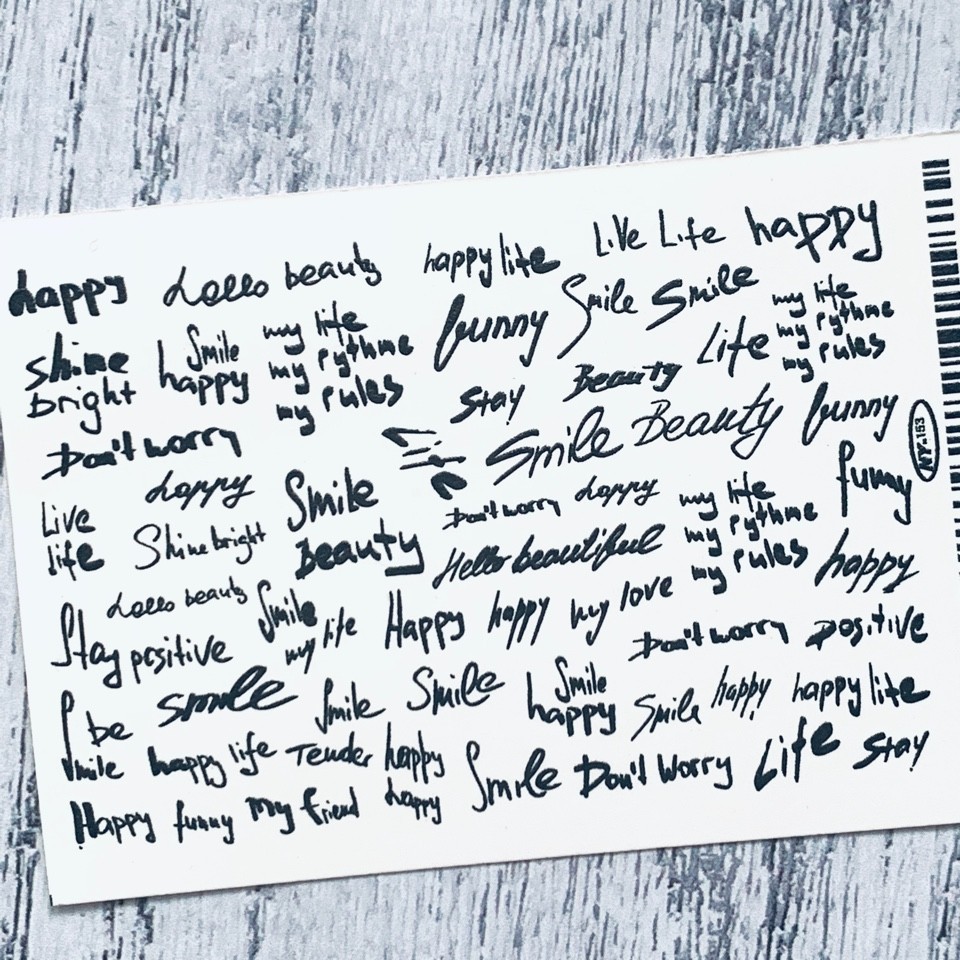 happy Hello beauty happy life Live Life happy
shine bright
Smile happy
my life
my rythme
my rules
funny Smile Smile
my life
my rythme
my rules
stay Beauty Life
Don't worry
Smile Beauty funny
NY-153
Live life
happy Smile
Shine bright
Beauty
Don't worry happy
my life
my rythme
my rules
funny
Hello beautiful
happy
Hello beauty Smile
Stay positive
my life Happy happy my love
Don't worry positive
be smile Smile Smile
Smile happy
Smile happy happy life
Smile happy life Tender happy
Smile Don't Worry Life Stay
Happy funny my friend happy